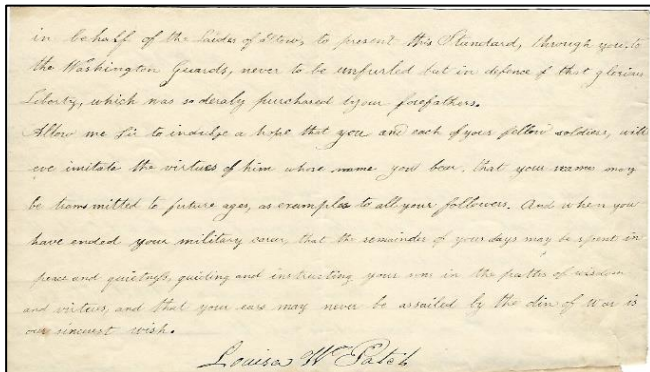 in behalf of the Ladies of Stow, to present this Standard, through you, to
the Washington Guards, never to be unfurled but in defence of that glorious
Liberty, which was so deraly purchased by our forefathers.
Allow me Sir to indulge a hope that you and each of your fellow soldiers, will
eve imitate the virtues of him whose name you bear. that your name may
be transmitted to future ages, as examples to all your followers. And when you
have ended your military carer, that the remainder of your days may be spent in
peace and quietness, guiding and instructing your sons in the paths of wisdom
and virtues, and that your ears may never be assailed by the din of War is
our sincerest wish.
Louisa W Patch